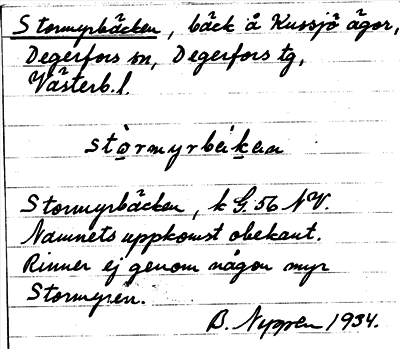 Stormyrbäcken, bäck å Kussjö ägor,
Degerfors sn, Degerfors tg,
Västerb. l.
stòrmyrbékan
Stormyrbäcken, k G. 56 NV.
Namnets uppkomst obekant.
Rinner ej genom någon myr
Stormyren.
B. Nyppen 1934.